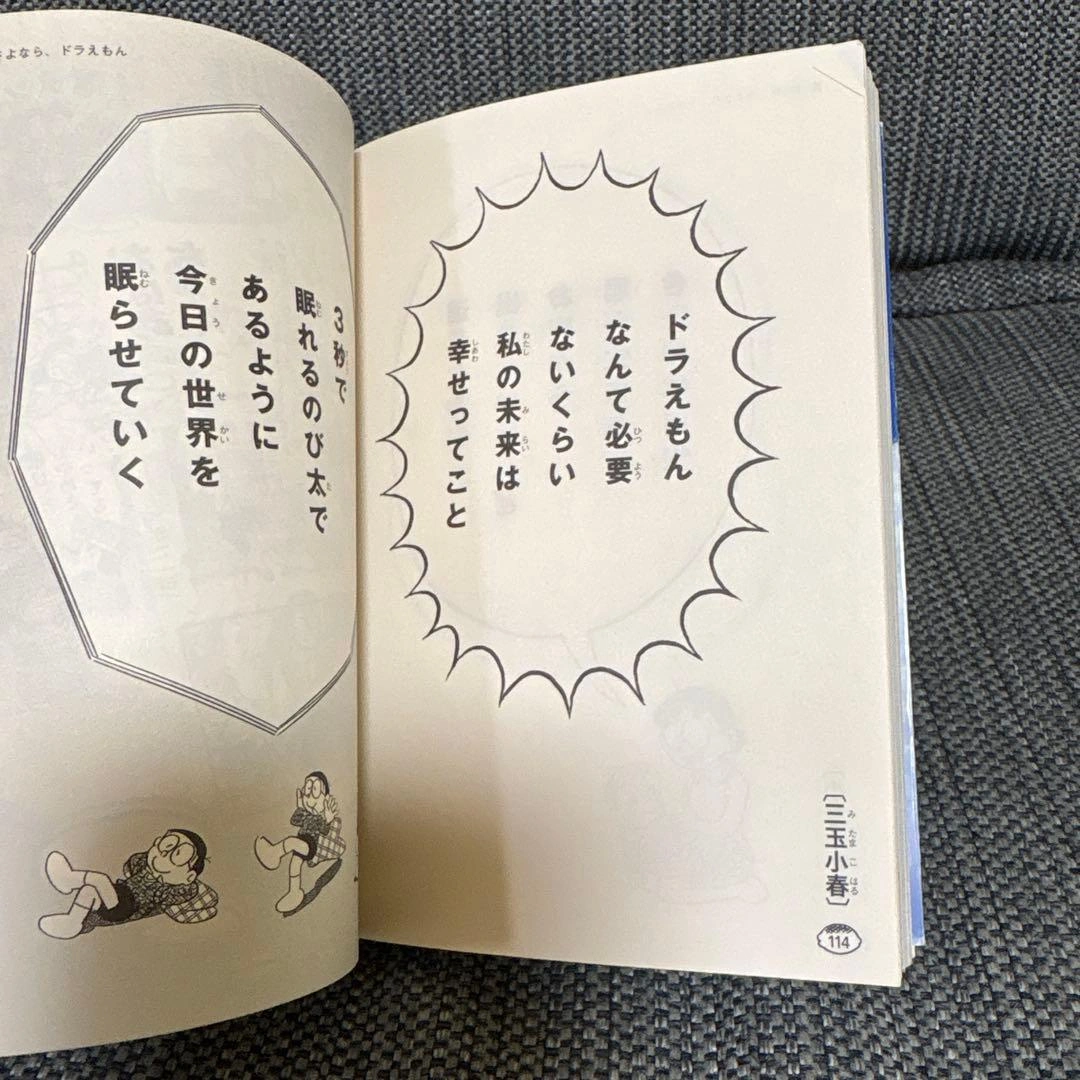 ドラえもん
なんて必要
ないくらい
私の未来は
幸せってこと
〔三玉小春〕
114
よなら、ドラえもん
3秒で
眠れるのび太で
あるように
今日の世界を
眠らせていく